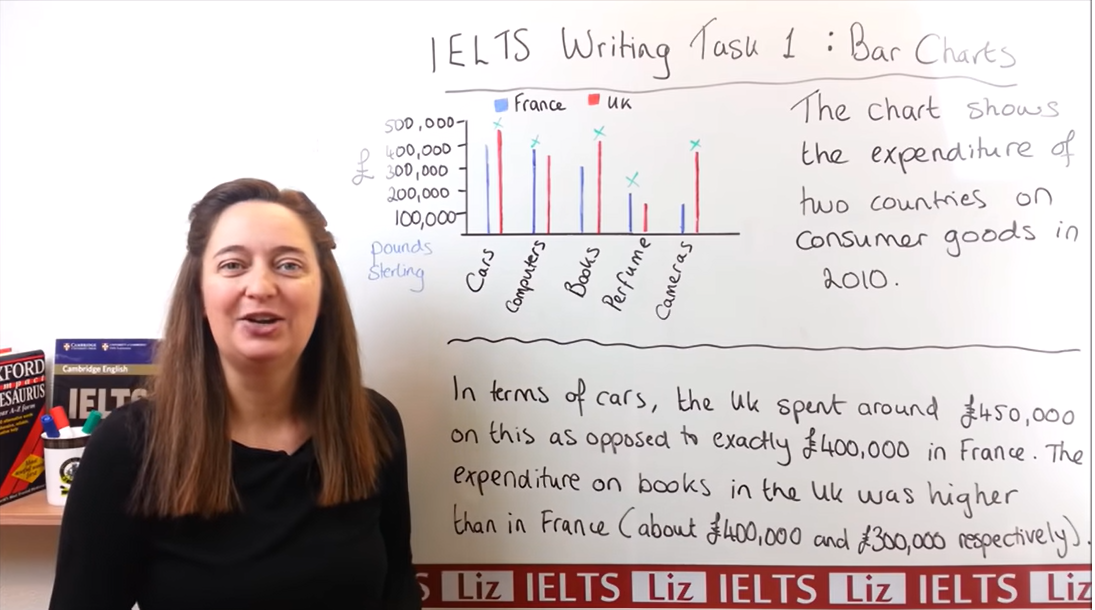 IELTS Writing Task 1 : Bar Charts
France UK
500,000
400,000
300,000
200,000
100,000
£
Pounds
Sterling
Cars
Computers
Books
Perfume
Cameras
The chart shows
the expenditure of
two countries on
consumer goods in
2010.
In terms of cars, the UK spent around £450,000
on this as opposed to exactly £400,000 in France. The
expenditure on books in the UK was higher
than in France (about £400,000 and £300,000 respectively).
Cambridge English
IELTS
S Liz IELTS Liz IELTS Liz IELTS Liz